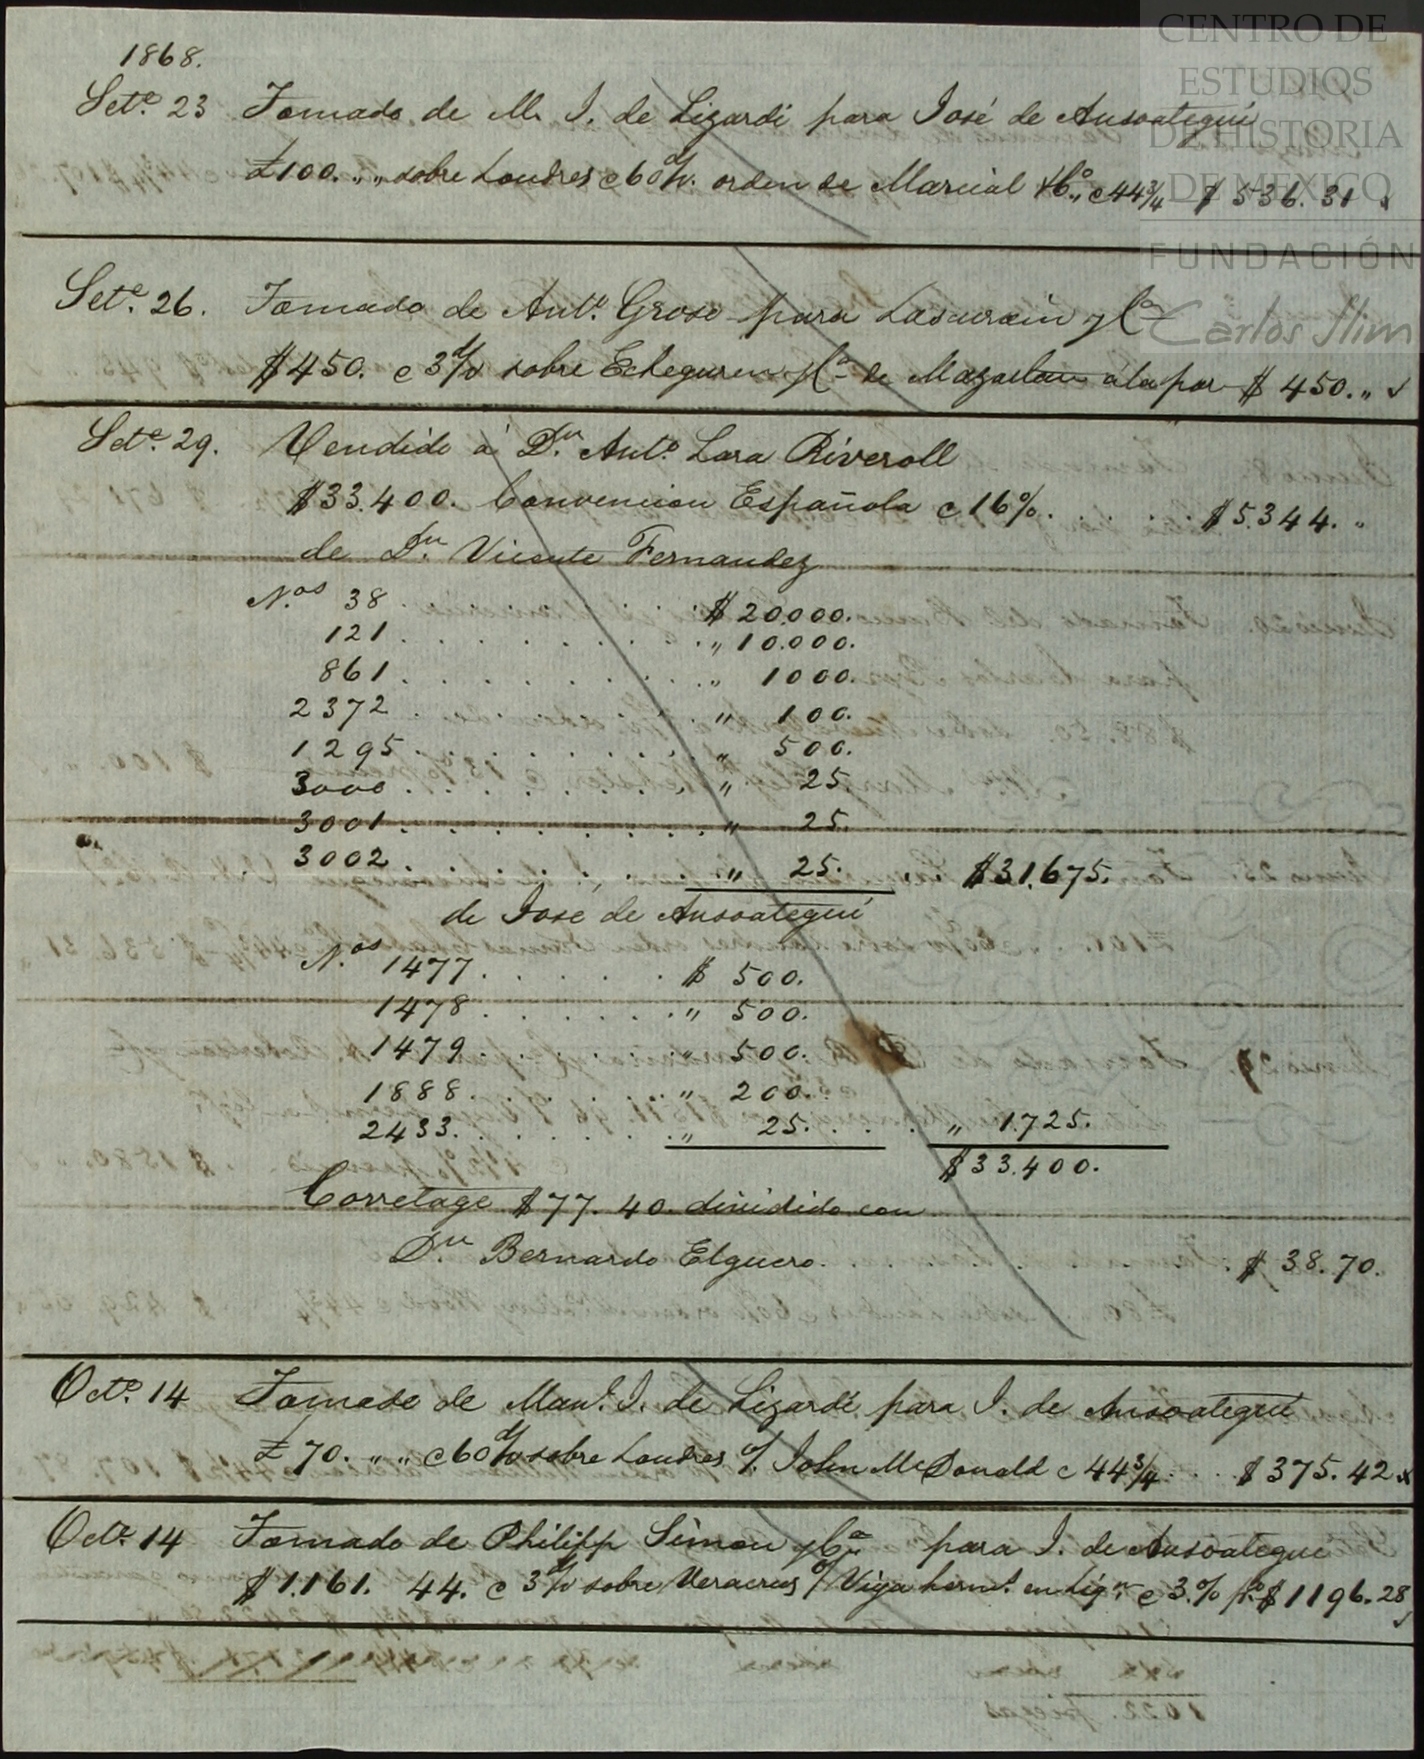 CENTRO DE
ESTUDIOS
DE HISTORIA
DE MÉXICO
FUNDACIÓN
Carlos Slim
1868.
Sete. 23 Tomado de M. J. de Lizardi para José de Ansoategui
£100. „ „ sobre Londres c 60 d/v. orden de Marcial y Co. „ c 44 3/4 $ 536. 31
Sete. 26. Tomado de Anto. Grose para Lascurain y Ca
$450. c 3 d/v sobre Echeguren y Ca de Mazatlan á la par $ 450. „
Sete. 29. Vendido á Dn. Anto. Lara Riveroll
$33.400. Convencion Española c 16%. . . . . . $5.344. „
de Dn. Vicente Fernandez
Nos. 38 . . . . . . . . $ 20.000.
121 . . . . . . . . „ 10.000.
861 . . . . . . . . „ 1000.
2372 . . . . . . . . „ 100.
1295 . . . . . . . . „ 500.
3000 . . . . . . . . „ 25.
3001 . . . . . . . . „ 25.
3002 . . . . . . . . „ 25. . . $31.675.
de José de Ansoategui
Nos. 1477 . . . . . . $ 500.
1478 . . . . . . „ 500.
1479 . . . . . . „ 500.
1888 . . . . . . „ 200.
2433 . . . . . . „ 25. . . . „ 1.725.
$33.400.
Corretage $77. 40. dividido con
Dn. Bernardo Elguero. . . . . . . . . $ 38. 70.
Octe. 14 Tomado de Manl. J. de Lizardi para J. de Ansoategui
£ 70. „ „ c 60 d/v sobre Londres o/. John McDonald c 44 3/4 . . . $ 375. 42
Octe. 14 Tomado de Philipp Simon y Ca para J. de Ansoategui
$ 1.161. 44. c 3 d/v sobre Veracruz o/ Viya hermo. en liqn. c 3.% po. $ 1196. 28